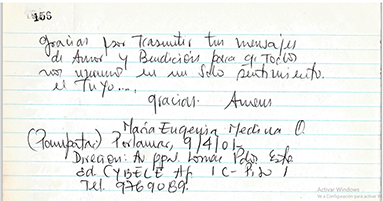 156
Gracias por Trasmitir tus mensajes
de Amor y Bendición para q' Todos
nos unamos en un solo sentimiento.
el Tuyo....,
Gracias. Amens
María Eugenia Medina O
(Pampatar) Porlamar, 9/4/01.
Direccion: Av ppal Lomas Pdro Este
Ed. CYBELE Ap 1C - Piso 1
Tel. 9769089.
Activar Windows
Ve a Configuración para activar